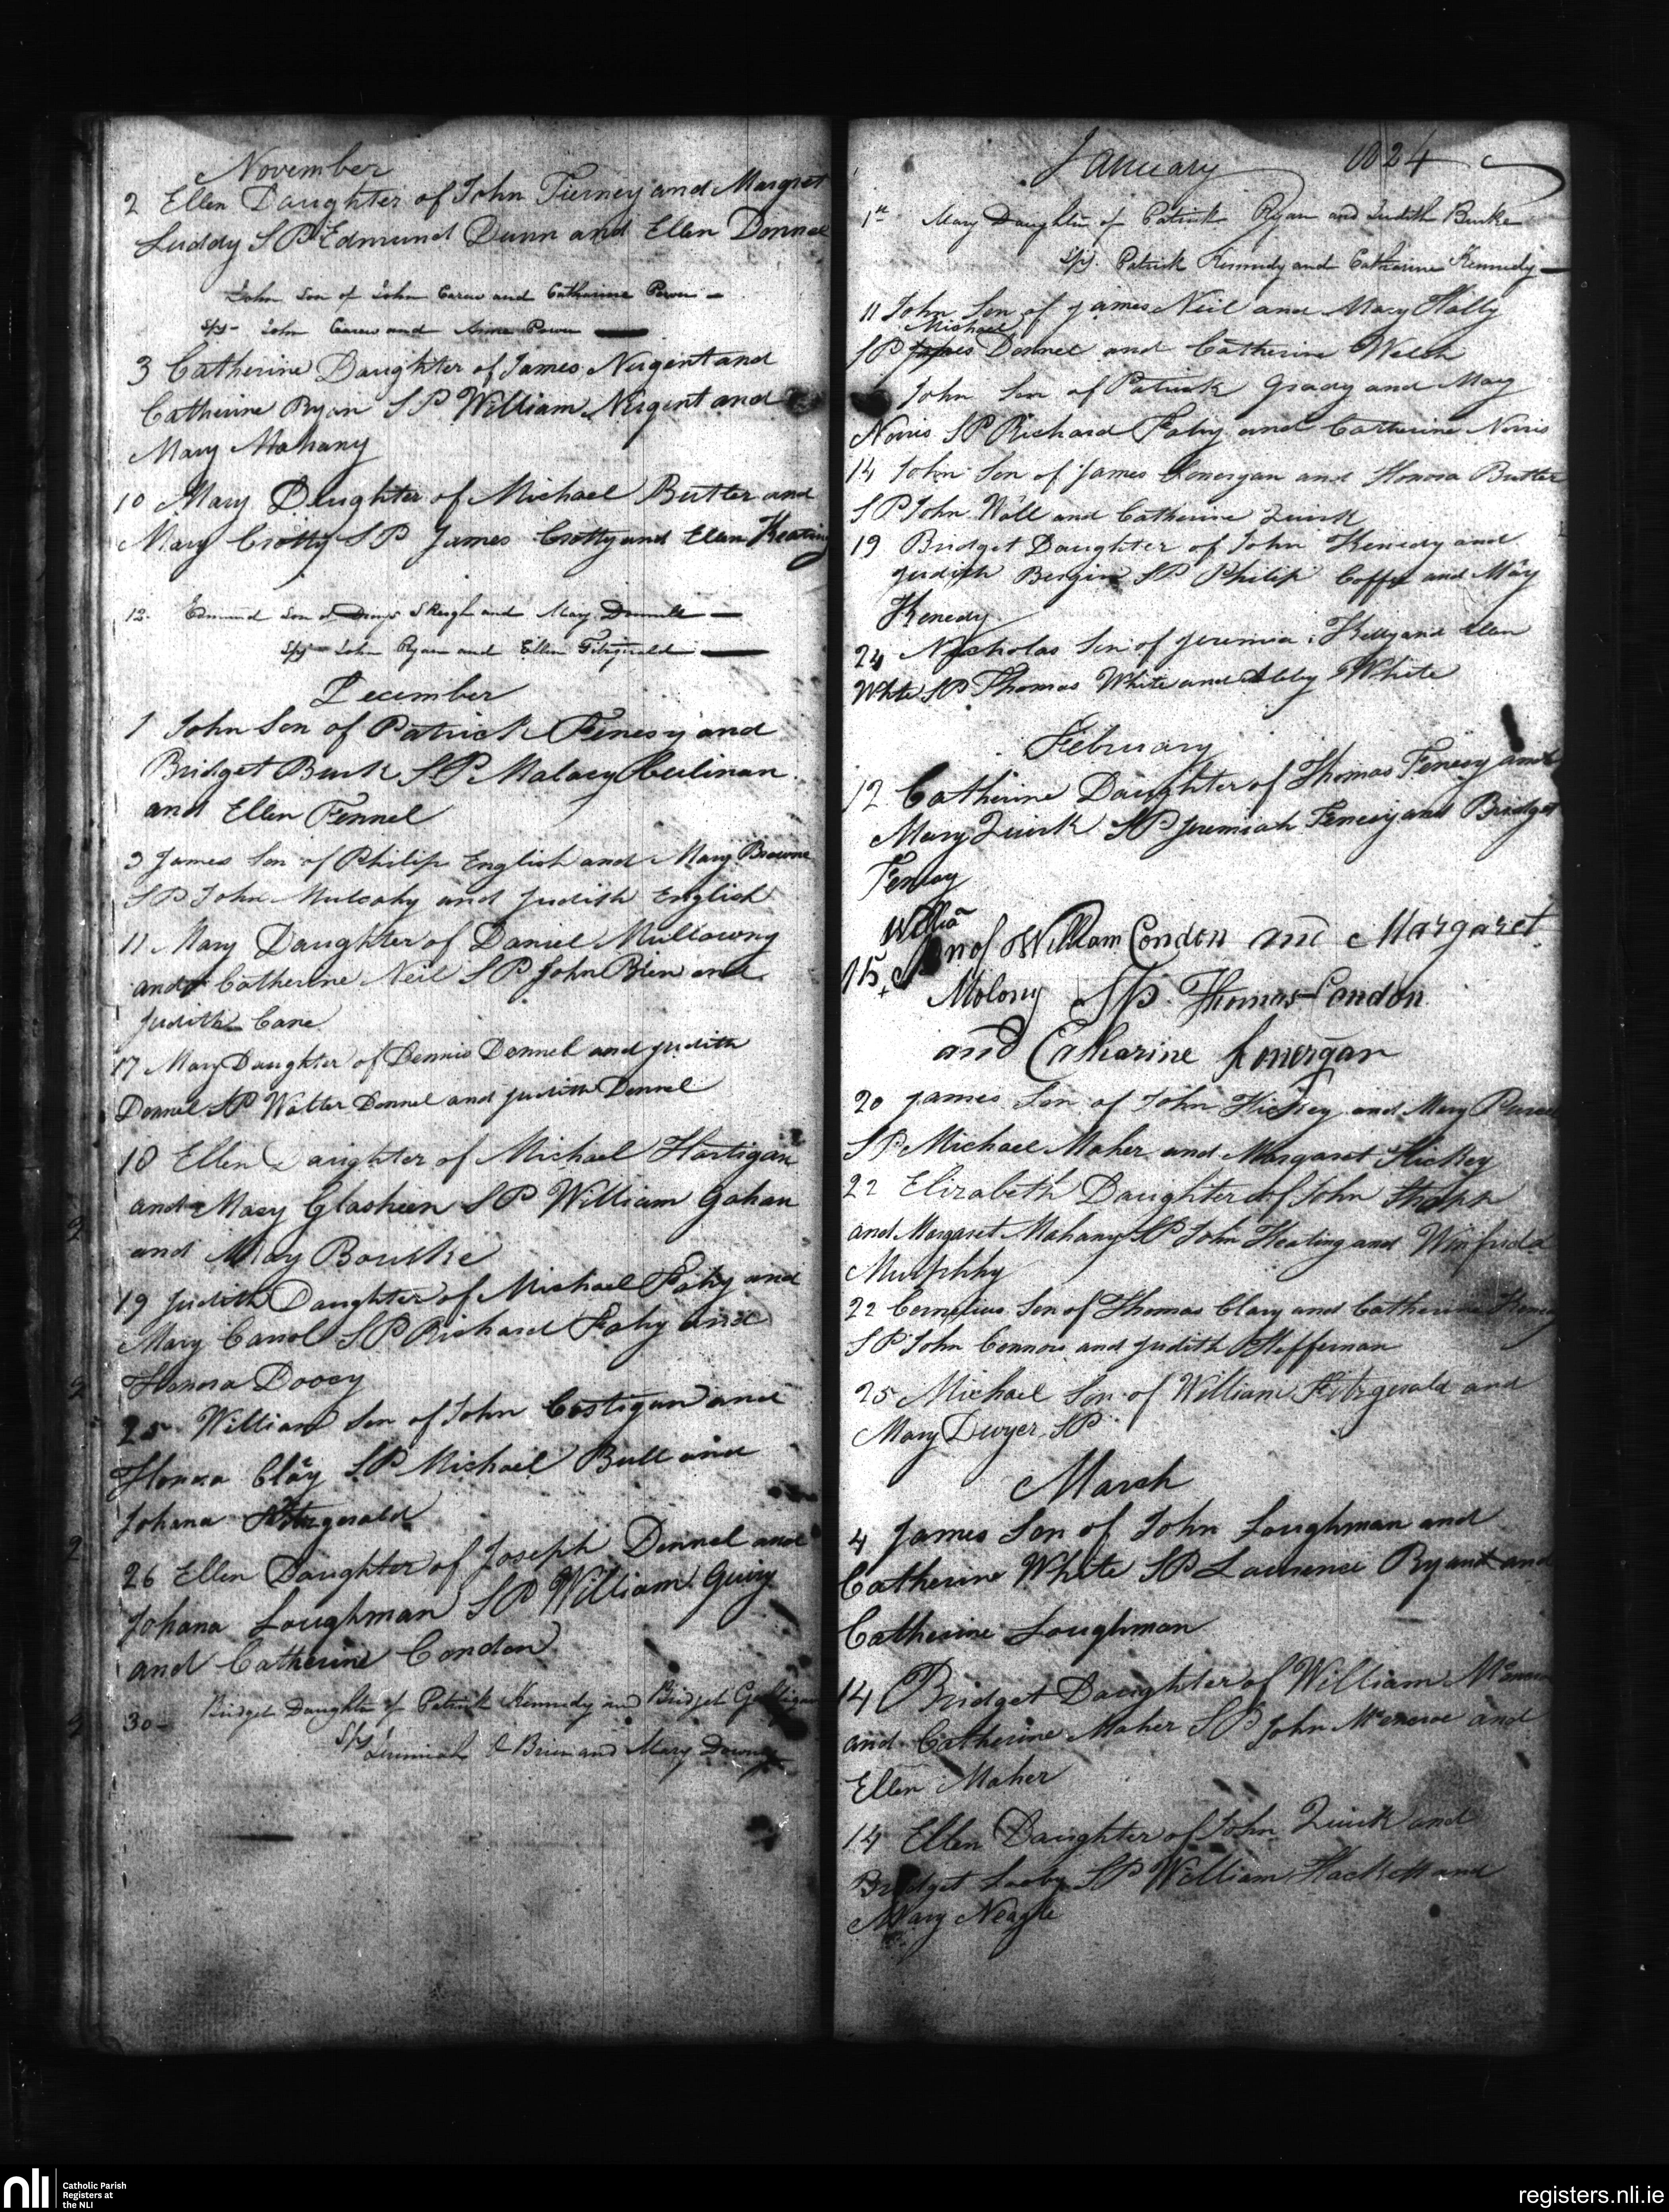 November
2 Ellen Daughter of John Tierney and Margret
Luddy SP Edmund Dunn and Ellen Donnel
John Son of John Carew and Catharine Power
Sps John Carew and Anne Power
3 Catherine Daughter of James Nugent and
Catherine Ryan SP William Nugent and
Mary Mahany
10 Mary Daughter of Michael Butler and
Mary Crotty SP James Crotty and Ellen Keating
12. Edmund Son of Denys and Mary
Sps John Ryan and Ellen Fitzgerald
December
1 John Son of Patrick Fenesy and
Bridget Burk SP Malacy Culinan
and Ellen Fennel
3 James Son of Philip English and Mary Browne
SP John Mulcahy and Judith English
11 Mary Daughter of Daniel Mullowny
and Catherine Neil SP John and
Judith Cane
17 Mary Daughter of Dennis Donnel and Judith
Donnel SP Walter Donnel and Judith Donnel
18 Ellen Daughter of Michael Hartigan
and Mary Glasheen SP William Gahan
and Mary Bourke
19 Judith Daughter of Michael Fahy and
Mary Carrol SP Richard Fahy and
Honora Dooey
25 William Son of John Costigan and
Honora Clary SP Michael Bull and
Johana Fitzgerald
26 Ellen Daughter of Joseph Donnel and
Johana Loughman SP William Guiry
and Catherine Condon
30 Bridget Daughter of Patrick Kennedy and Bridget
Sps Jeremiah O Brien and Mary
January 1824
1st Mary Daughter of Patrick Ryan and Judith Burke
Sps. Patrick Kennedy and Catherine Kennedy
11 John Son of James Neil and Mary Hally
Michael
SP Donnel and Catherine Welsh
John Son of Patrick Grady and Mary
Norris SP Richard Fahy and Catherine Norris
14 John Son of James Lonergan and Honora Butler
SP John Wall and Catherine Quirk
19 Bridget Daughter of John Kenedy and
Judith Bergin SP Philip Coffy and Mary
Kenedy
24 Nicholas Son of Jeremia Kelly and Ellen
White SP Thomas White and Abby White
February
12 Catherine Daughter of Thomas Fenesy and
Mary Quirk SP Jeremiah Fenesy and Bridget
Fenesy
Willia
15 Son of William Condon and Margaret
Molony Sp. Thomas Condon
and Catharine Lonergan
20 James Son of John Hickey and Mary
SP Michael Maher and Margaret Hickey
22 Elizabeth Daughter of John
and Margaret Mahany SP John Keating and Winfrida
Mulphhy
22 Cornelius Son of Thomas Clary and Catherine
SP John Connors and Judith Heffernan
25 Michael Son of William Fitzgerald and
Mary Dwyer SP
March
4 James Son of John Loughman and
Catherine White SP Laurence Ryan and
Catherine Loughman
14 Bridget Daughter of William
and Catherine Maher SP John and
Ellen Maher
14 Ellen Daughter of John Quirk and
Bridget Looby SP William Hackett and
Mary Neagle
nli
Catholic Parish
Registers at
the NLI
registers.nli.ie